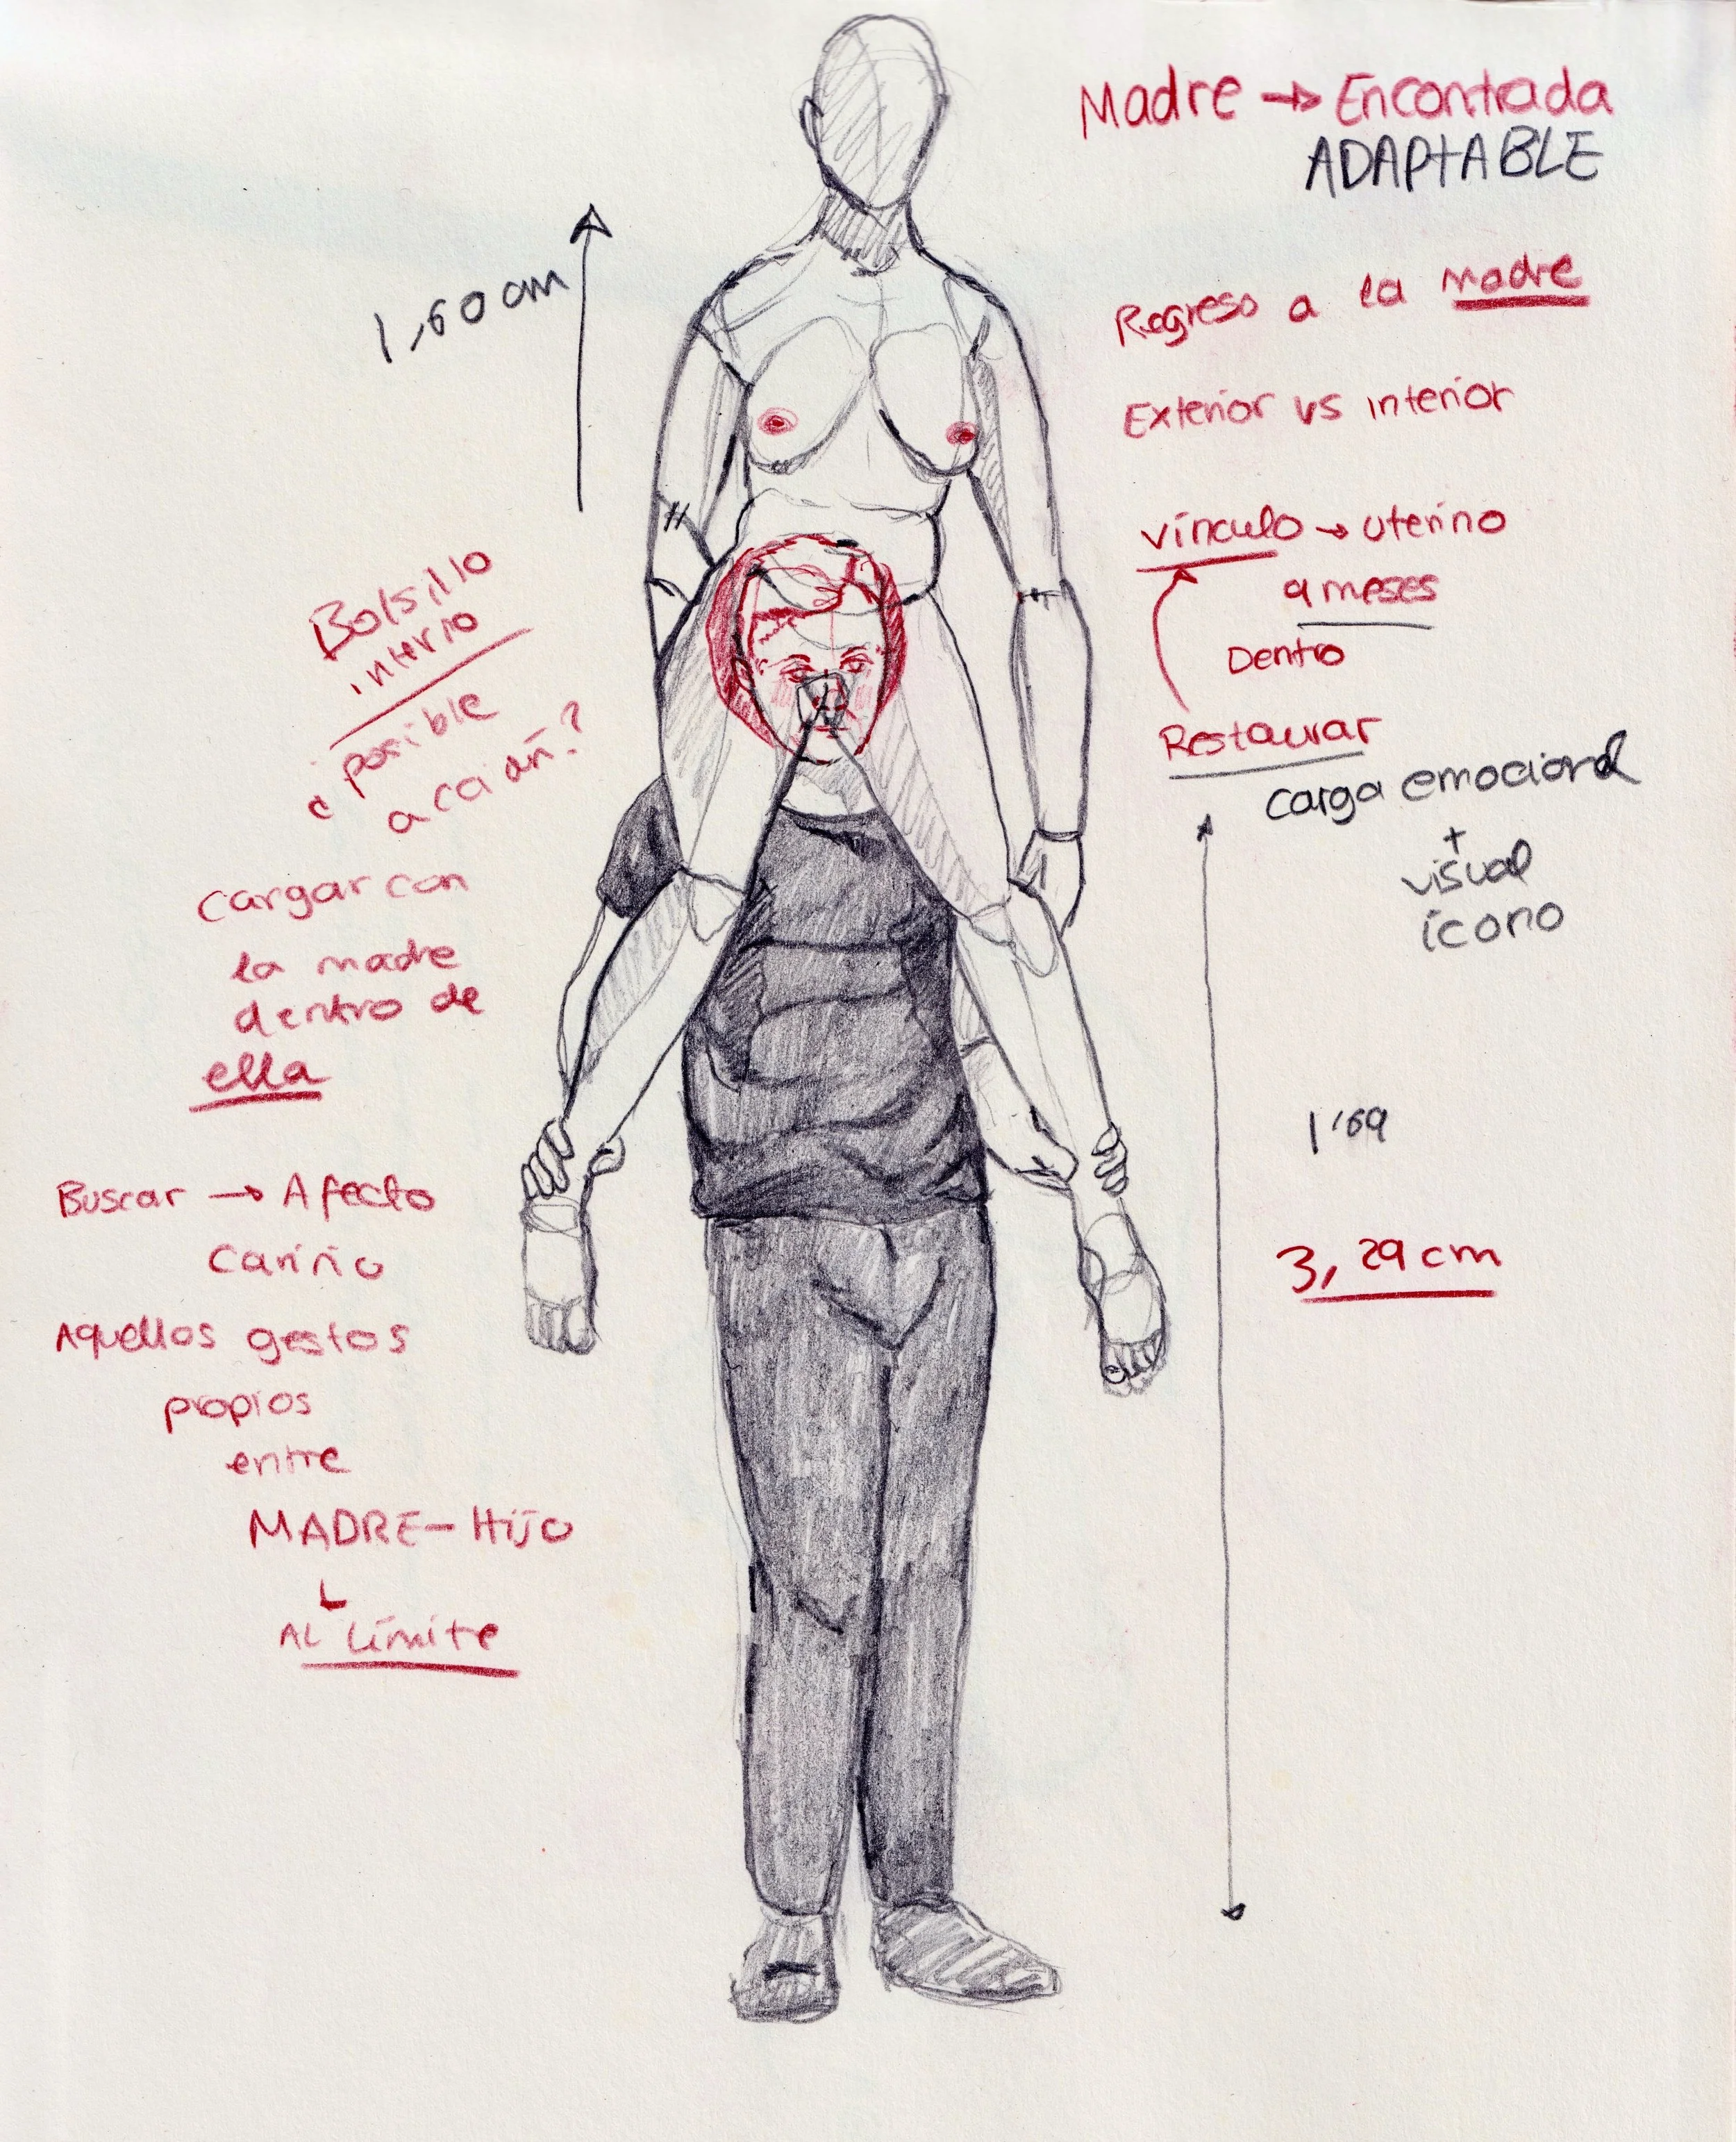 Madre → Encontrada
ADAPTABLE
1,60 cm
Regreso a la madre
Exterior vs interior
vínculo → uterino
9 meses
Dentro
Restaurar
carga emocional
+
visual
ícono
Bolsillo
interio
¿posible
acción?
cargar con
la madre
dentro de
ella
Buscar → Afecto
Cariño
Aquellos gestos
propios
entre
MADRE-Hijo
AL Límite
1'69
3,29 cm